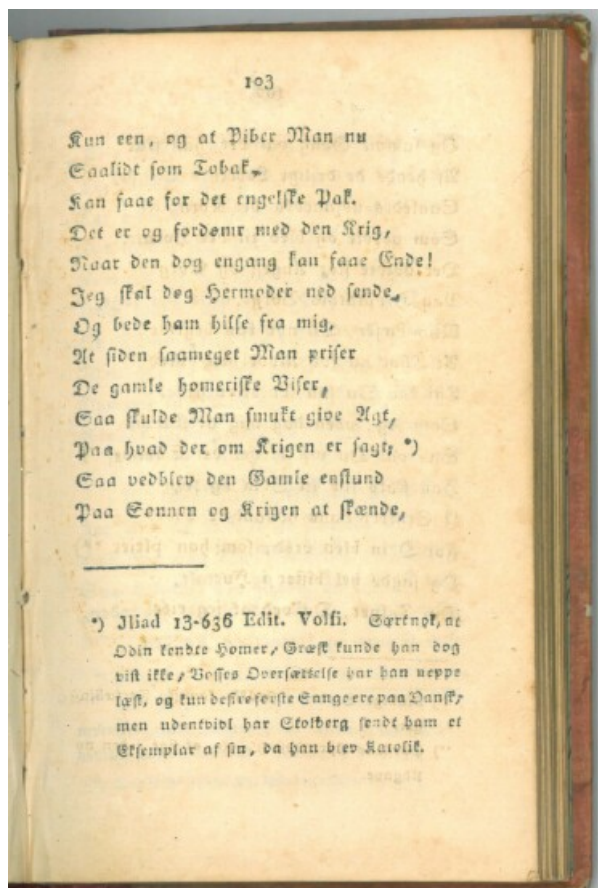 103
Kun een, og at Piber Man nu
Saalidt som Tobak,
Kan faae for det engelske Pak.
Det er og fordømt med den Krig,
Naar den dog engang kan faae Ende!
Jeg skal dog Hermoder ned sende,
Og bede ham hilse fra mig,
At siden saameget Man priser
De gamle homeriske Viser,
Saa skulde Man smukt give Agt,
Paa hvad der om Krigen er sagt; *)
Saa vedblev den Gamle enstund
Paa Sønnen og Krigen at skænde,
*) Iliad 13-636 Edit. Volfi. Særtnok, at
Odin kendte Homer, Græsk kunde han dog
vist ikke, Vosses Oversættelse har han neppe
læst, og kun de fire første Sange ere paa Dansk,
men udentvivl har Stolberg sendt ham et
Eksemplar af sin, da han blev Katolik.